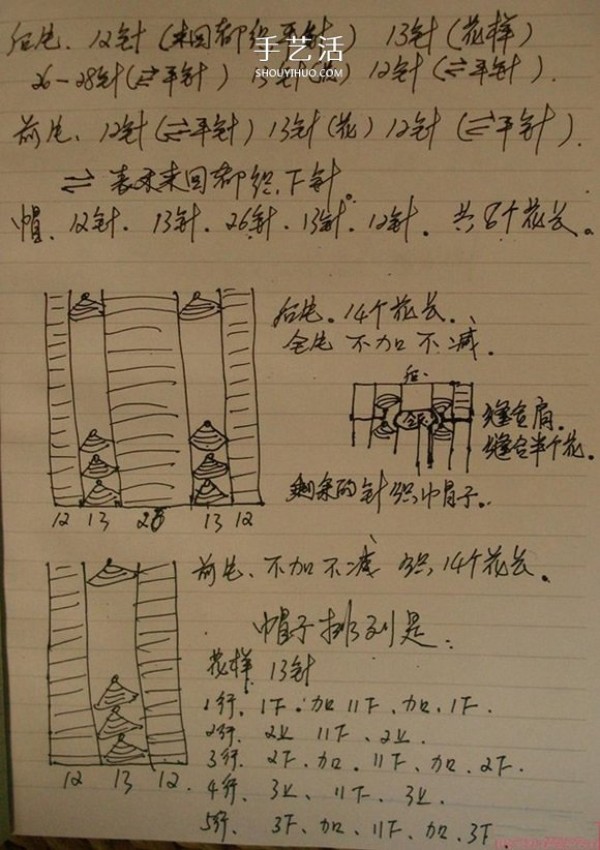 后片、12针(来回都织平针) 13针(花样)
26-28针(⇌平针) 13针(花) 12针(⇌平针).
手艺活
SHOUYIHUO.COM
前片、12针(⇌平针) 13针(花) 12针(⇌平针).
⇌ 表示来回都织下针。
帽、12针、13针、26针、13针、12针。共8个花长。
后片。14个花长、
全片不加不减.
后.
缝合肩.
缝合半个花。
剩余的针织帽子。
12 13 28 13 12
前片、不加不减 织14个花长。
帽子排列是:
花样 13针
1行、1下、加 11下、加、1下.
2行、2上 11下、2上.
3行、2下、加、11下、加、2下.
4行、3上、11下、3上.
5行、3下、加、11下、加、3下.
12 13 12.